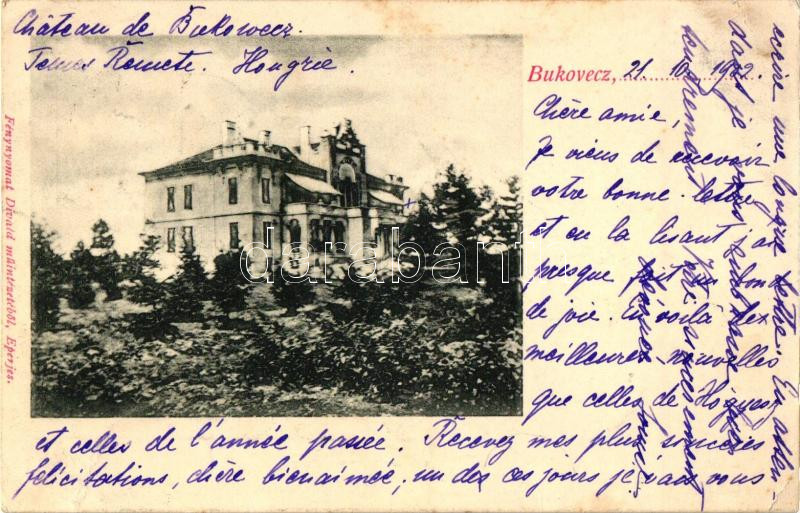 Château de Bukowecz.
Temes Remete. Hongrie.
Bukovecz, 21. 10. 1902.
Chère amie,
Je viens de recevoir
votre bonne lettre
et en la lisant j'ai
presque fait un bond
de joie. En voilà des
meilleures nouvelles
que celles de
et celles de l'année passée. Recevez mes plus sincères
félicitations, chère bienaimée, un de ces jours je vais vous
écrire une longue lettre. En atten-
dant je vous
tendrement
Fénynyomat Divald műintézetéből, Eperjes.
darabanth